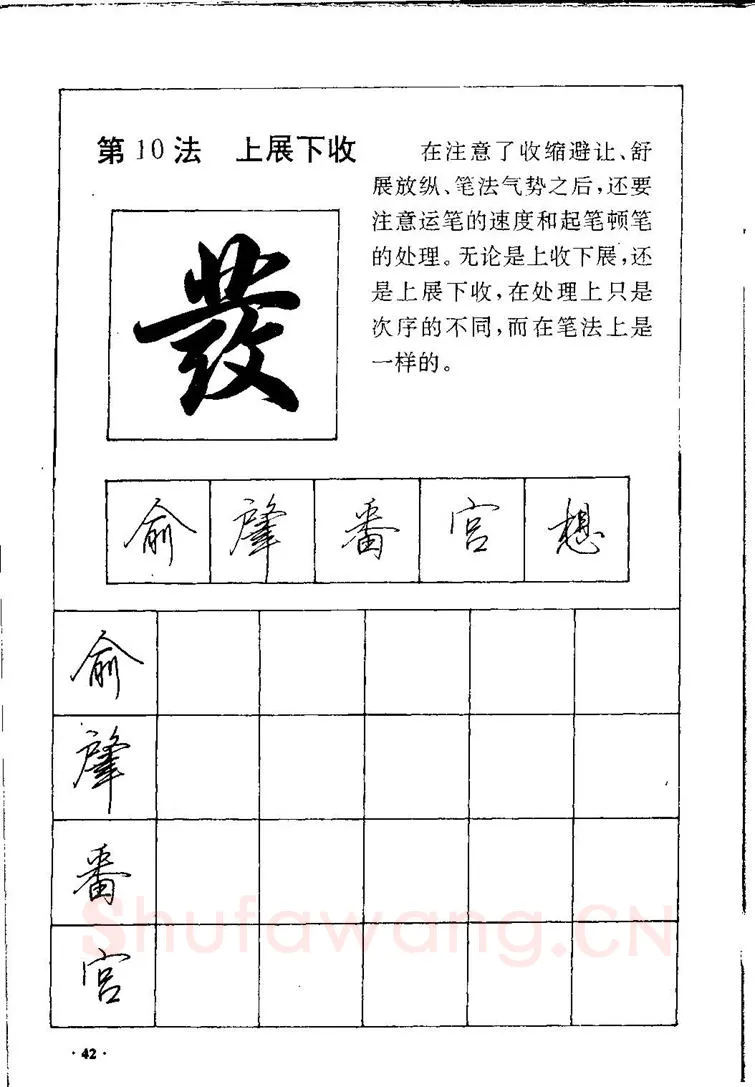 第10法 上展下收
在注意了收缩避让、舒
展放纵、笔法气势之后,还要
注意运笔的速度和起笔顿笔
的处理。无论是上收下展,还
是上展下收,在处理上只是
次序的不同,而在笔法上是
一样的。
發
俞 肇 番 宫 想
俞
肇
番
宫
Shufawang.CN
·42·